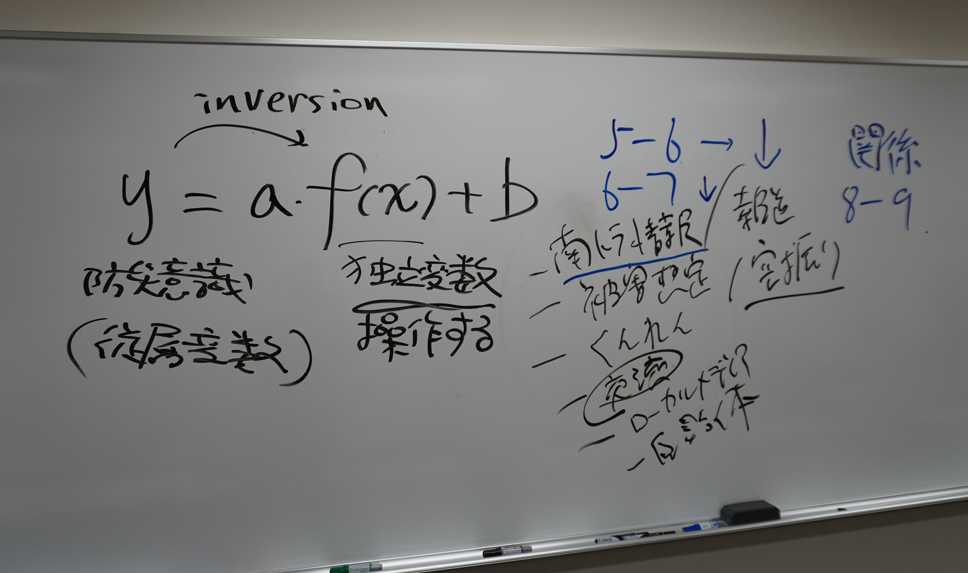 inversion
y = a・f(x) + b
防災意識
(従属変数)
独立変数
操作する
5-6 → ↓
6-7 ↓
報道
(空振り)
- 南トラ情報
- 被害想定
- くんれん
-
- ローカルメディア
- 自治体
関係
8-9